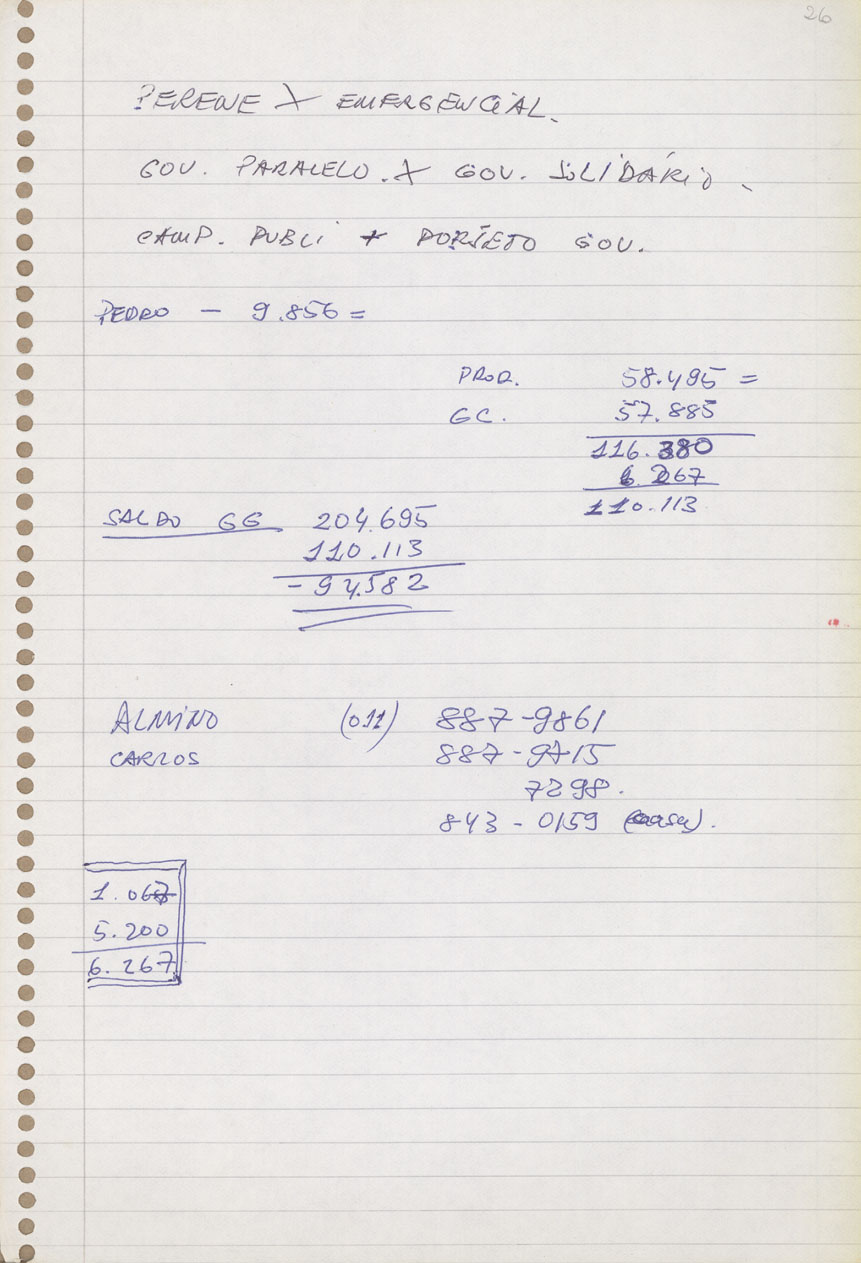 26
PERENE X EMERGENCIAL.
GOV. PARALELO. X GOV. SOLIDÁRIO.
CAMP. PUBLI + PORJETO GOV.
PEDRO — 9.856 =
PROD. 58.495 =
GC. 57.885
116.380
6.267
110.113
SALDO GG 204.695
110.113
- 94.582
ALMINO (011) 887-9861
CARLOS 887-9715
7298.
843-0159 (casa).
1.067
5.200
6.267